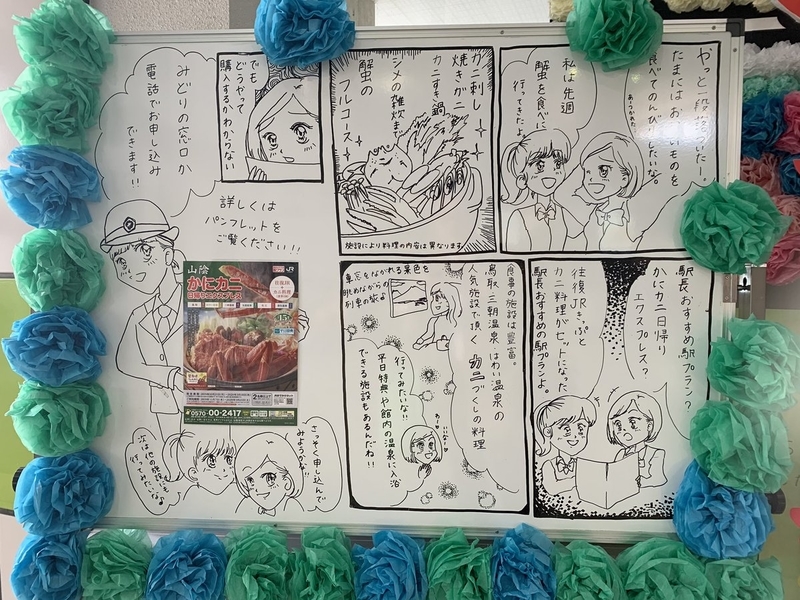 やっと一段落ついたー！
たまにはおいしいものを
食べてのんびりしたいな。
私は先週
蟹を食べに
行ってきたよ。
カニ刺し
焼きガニ
カニすき鍋
シメの雑炊まで
蟹の
フルコース
施設により料理の内容は異なります
でも
どうやって
購入するかわからない
駅長おすめの駅プランっ
かにカニ日帰り
エクスプレス？
往復JRきっぷと
カニ料理がセットになった
駅長おすすめの駅プランよ。
食事の施設は豊富。
鳥取 三朝温泉・はわい温泉の
人気施設で頂く カニづくしの料理
車窓をながれる景色を
眺めながらの
列車の旅よ
行ってみたいな!!
平日特典や館内の温泉に入浴
できる施設もあるんだね!!
みどりの窓口か
電話でお申し込み
できます!!
詳しくは
パンフレットを
ご覧ください!!
山陰
かにカニ
日帰りエクスプレス
JR
0570-00-2417
さっそく申し込んで
みようかな!!
次は他の施設にも
行ってみたいなぁ